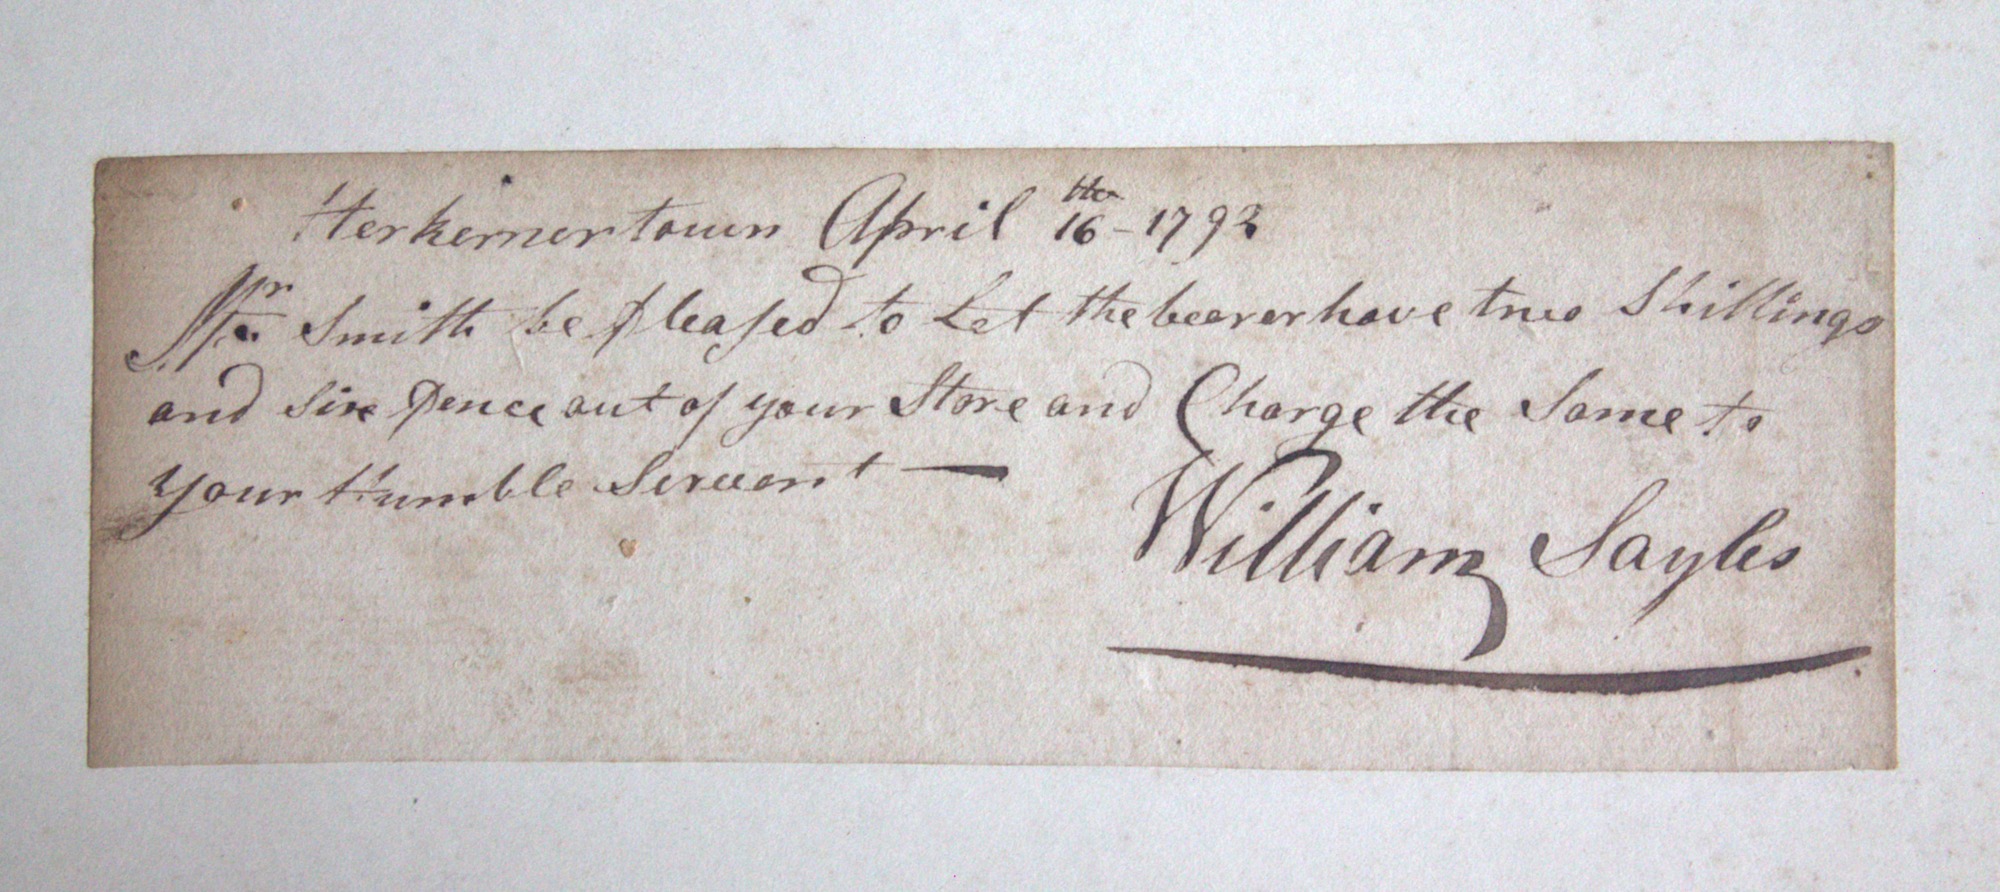 Herkemertown April 16th - 1792
Mr Smith be pleased to Let the bearer have two Shillings
and six pence out of your Store and Charge the Same to
your Humble Servent —
William Sayles